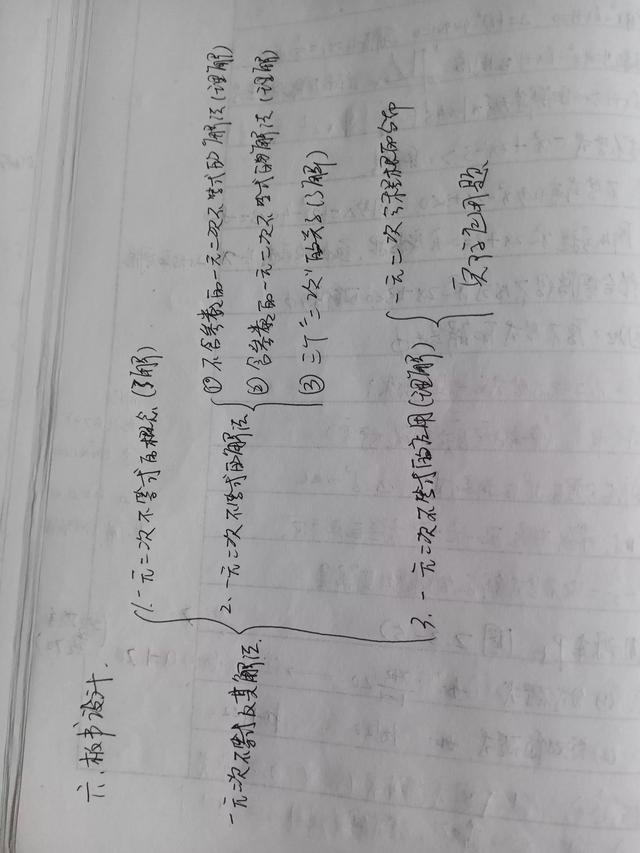 六、板书设计.
一元二次不等式及其解法.
1.一元二次不等式的概念(了解)
2、一元二次不等式的解法
①不含参数的一元二次不等式的解法(理解)
②含参数的一元二次不等式的解法(理解)
③三个"二次"的关系(了解)
3.一元二次不等式的应用(理解)
一元二次方程根的分布
实际应用题